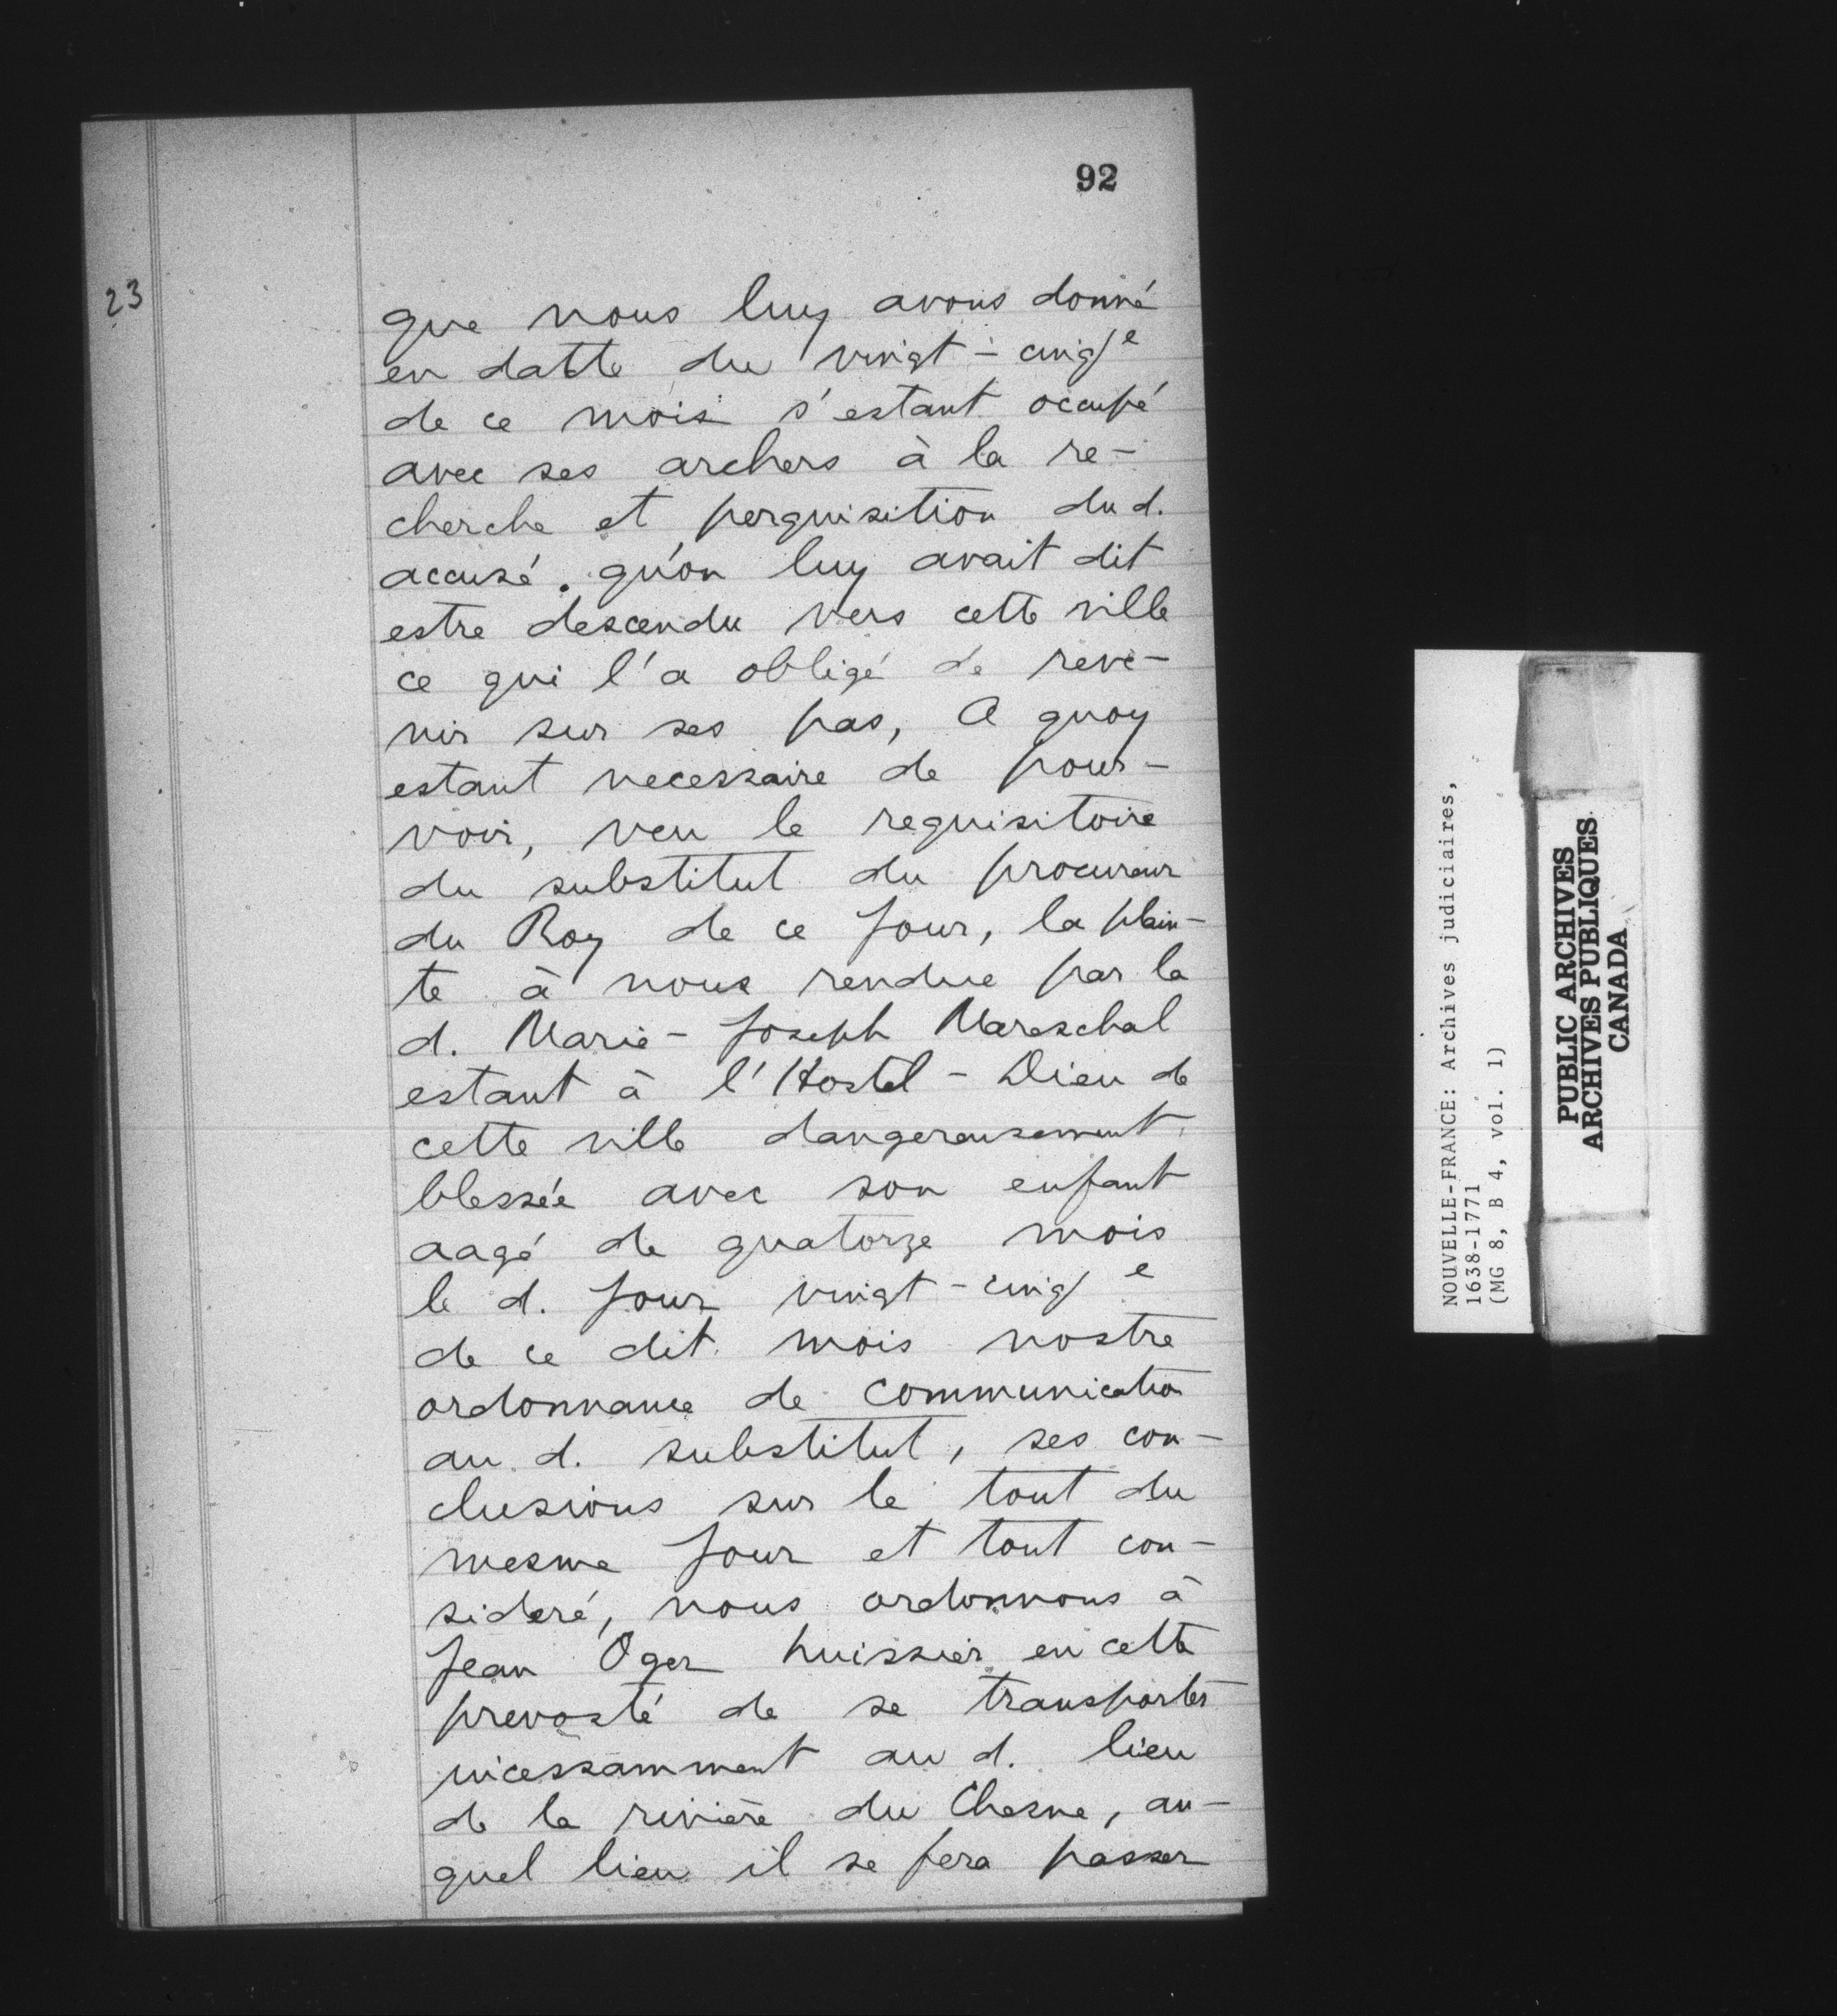 92
23
que nous luy avons donné
en datte du vingt-cinq e
de ce mois s'estant occupé
avec ses archers à la re-
cherche et perquisition du d.
accusé. qu'on luy avait dit
estre descendu vers cette ville
ce qui l'a obligé de reve-
nir sur ses pas, A quoy
estant necessaire de pour-
voir, veu le requisitoire
du substitut du procureur
du Roy de ce jour, la plain-
te à nous rendue par la
d. Marie-Joseph Mareschal
estant à l'Hostel-Dieu de
cette ville dangereusement
blessée avec son enfant
aagé de quatorze mois
le d. jour vingt-cinq e
de ce dit mois nostre
ordonnance de communication
au d. substitut, ses con-
clusions sur le tout du
mesme jour et tout con-
sideré, nous ordonnons à
Jean Oger huissier en cette
prevosté de se transporter
incessamment au d. lieu
de la rivière du Chesne, au-
quel lieu il se fera passer
NOUVELLE-FRANCE: Archives judiciaires,
1638-1771
(MG 8, B 4, vol. 1)
PUBLIC ARCHIVES
ARCHIVES PUBLIQUES
CANADA